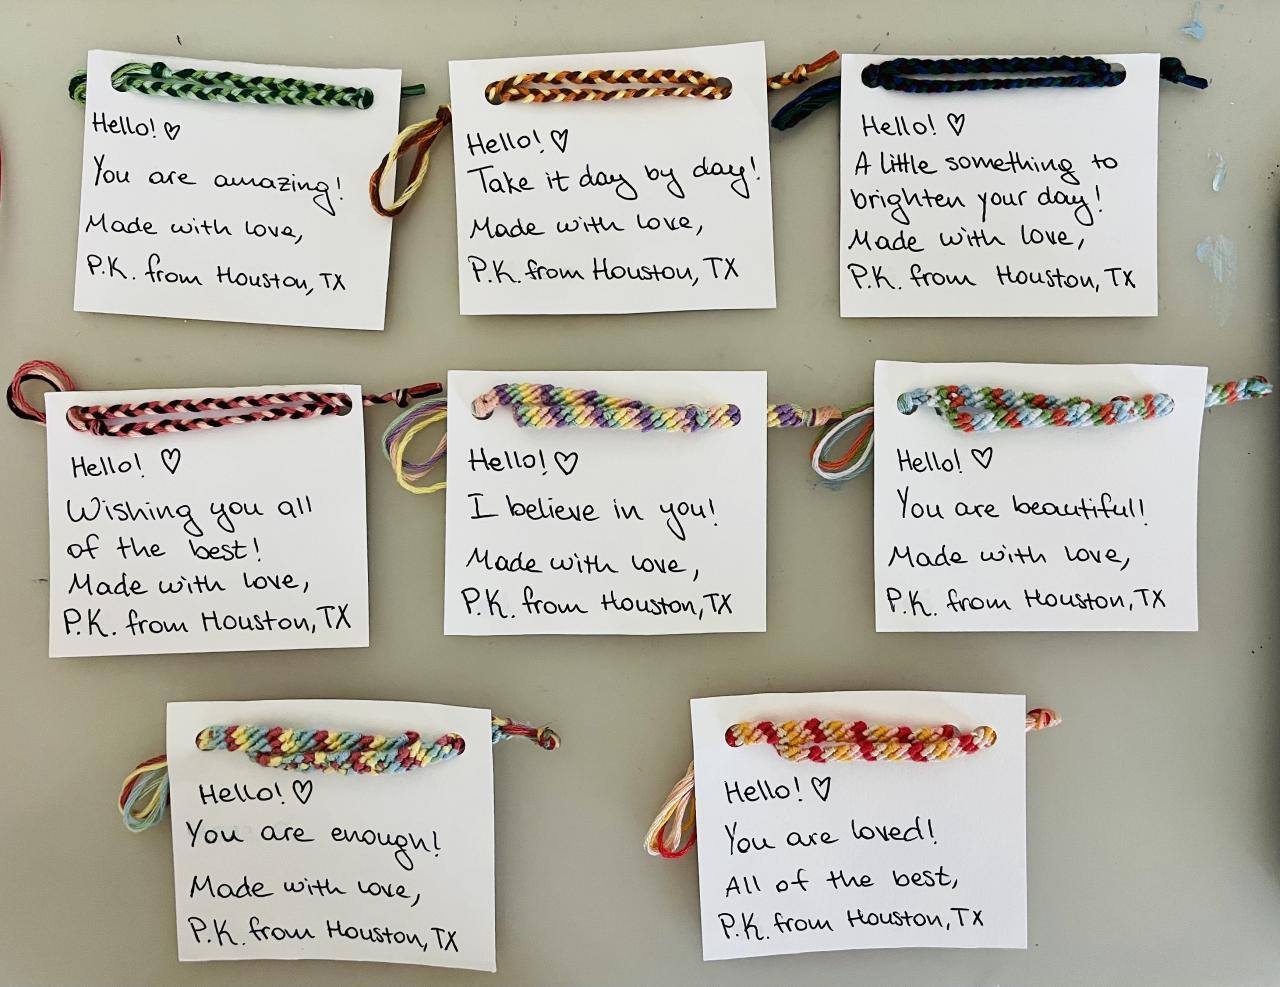 Hello! ♡
You are amazing!
Made with love,
P.K. from Houston, TX
Hello! ♡
Take it day by day!
Made with love,
P.K. from Houston, TX
Hello! ♡
A little something to
brighten your day!
Made with love,
P.K. from Houston, TX
Hello! ♡
Wishing you all
of the best!
Made with love,
P.K. from Houston, TX
Hello! ♡
I believe in you!
Made with love,
P.K. from Houston, TX
Hello! ♡
You are beautiful!
Made with love,
P.K. from Houston, TX
Hello! ♡
You are enough!
Made with love,
P.K. from Houston, TX
Hello! ♡
You are loved!
All of the best,
P.K. from Houston, TX